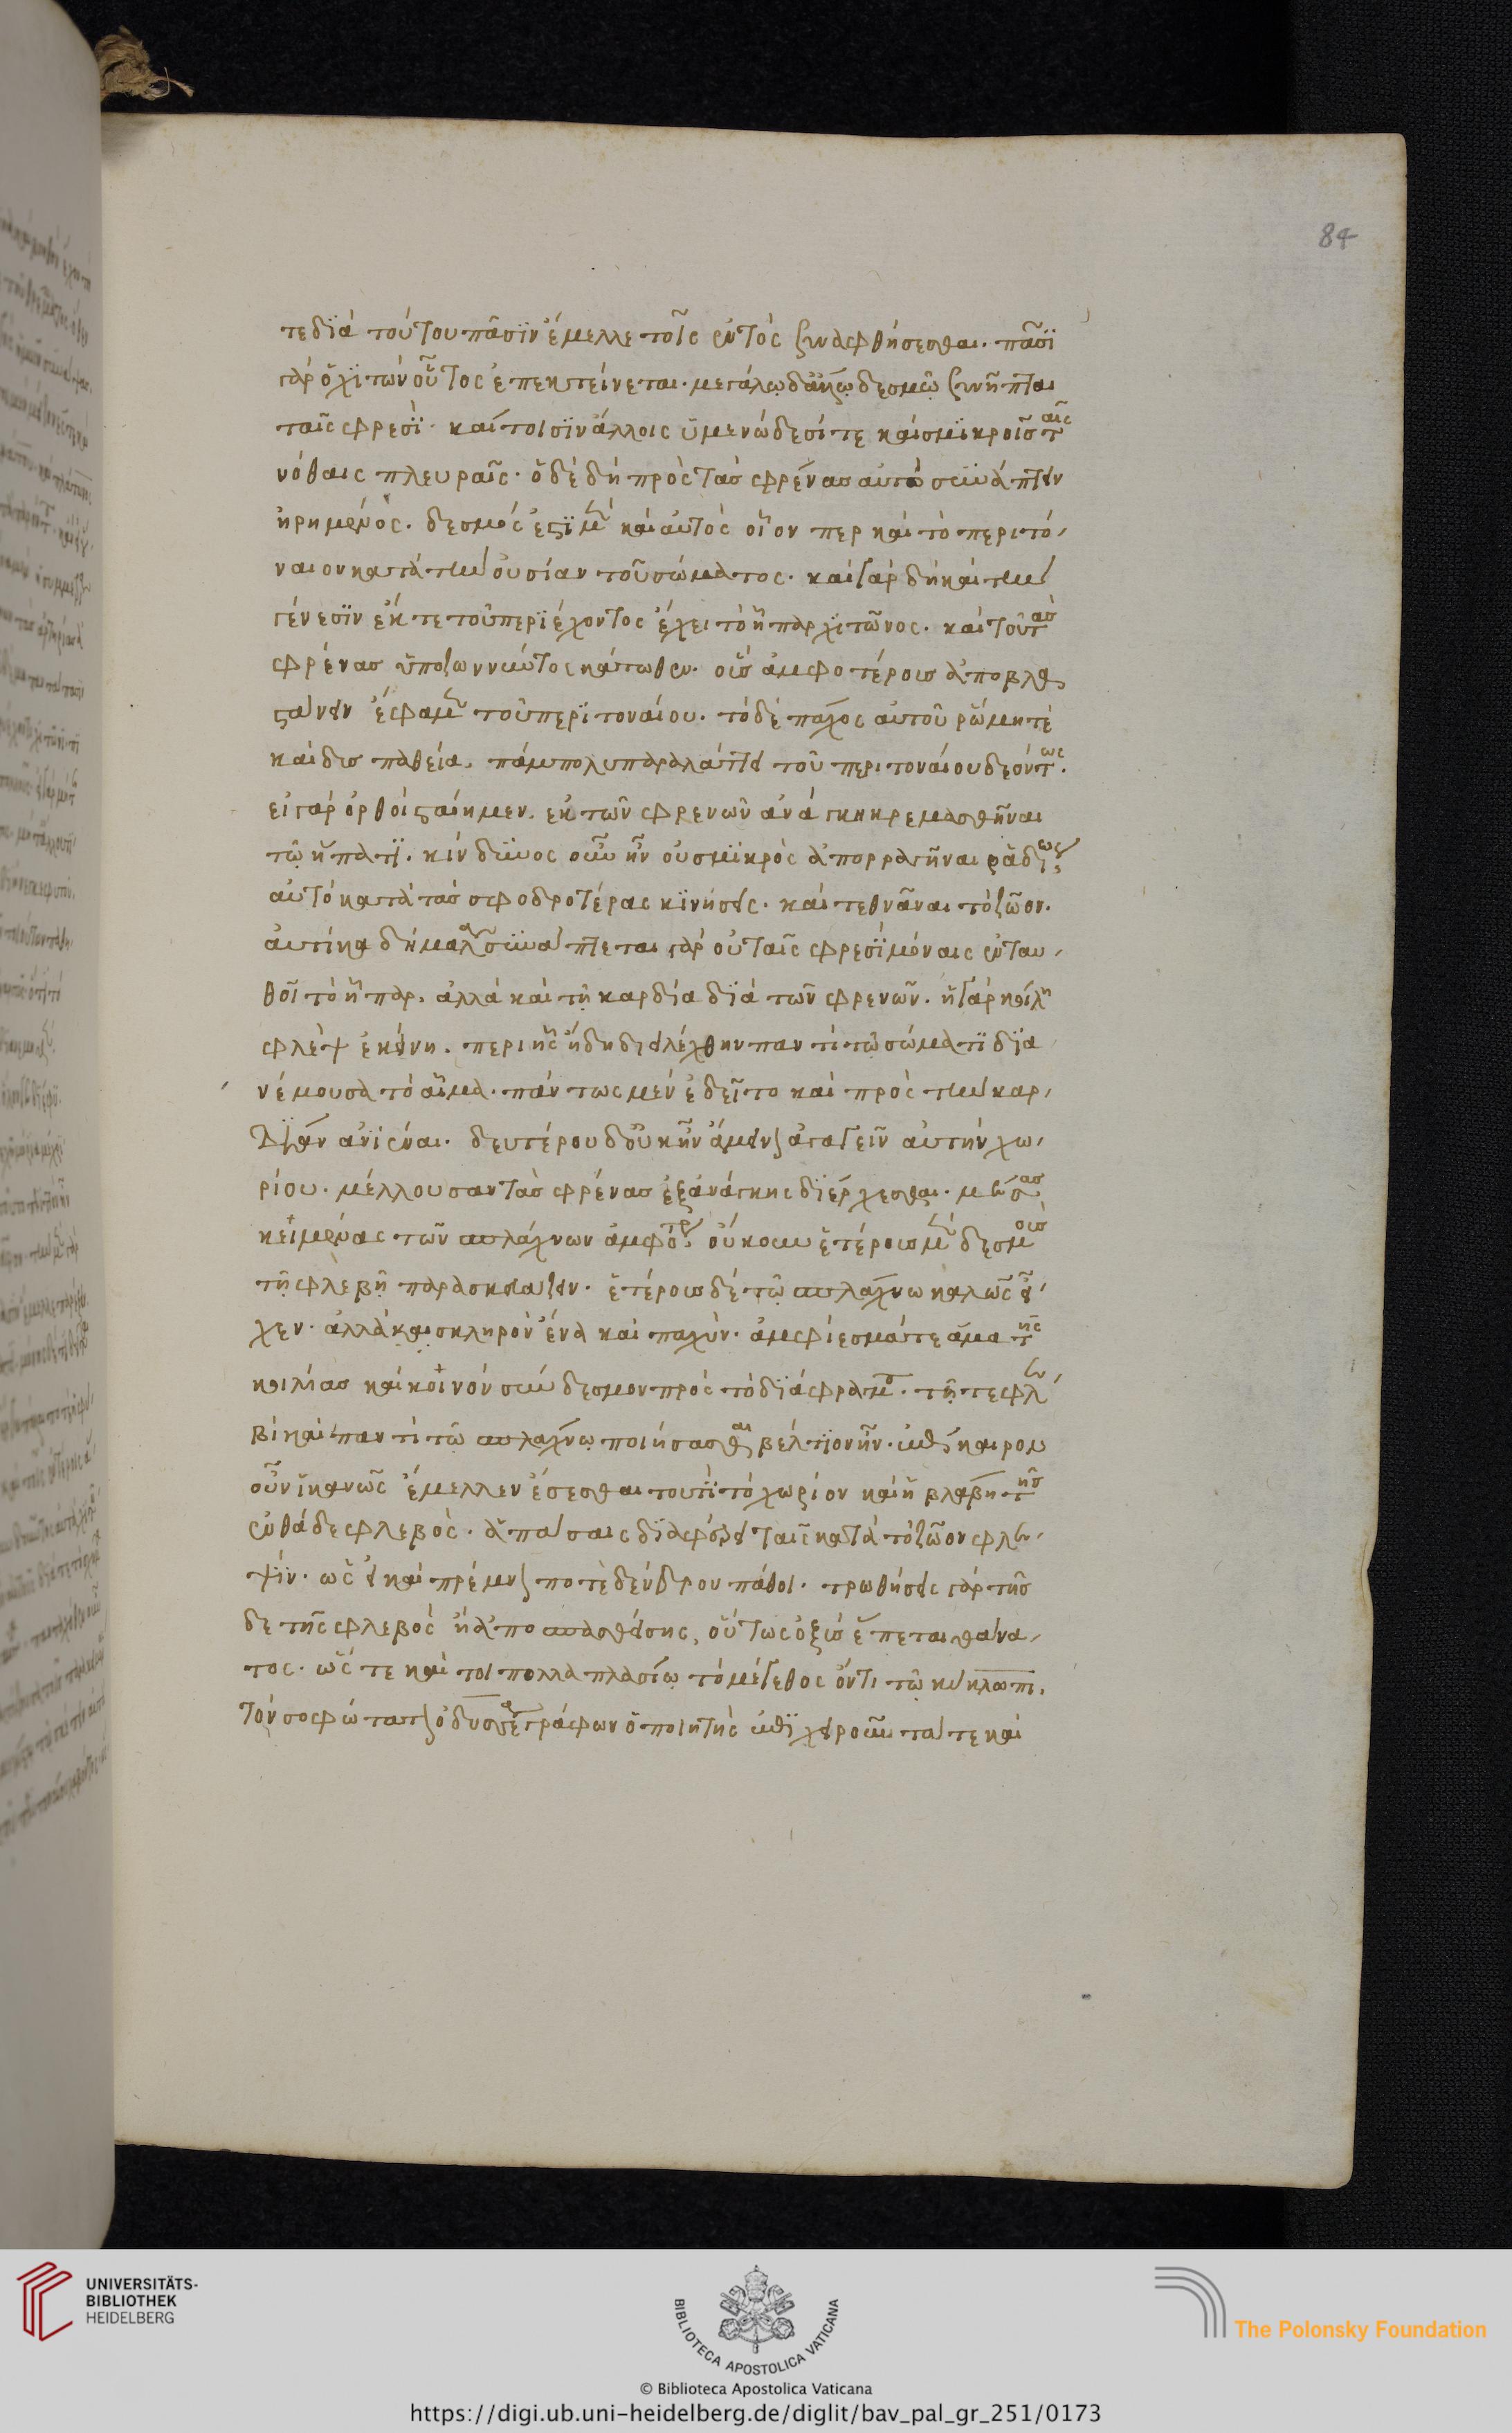 84
τε διὰ τούτου πᾶσιν ἔμελλε τοῖς ἐντὸς συναφθήσεσθαι. πᾶσι
γὰρ ὁ χιτὼν οὗτος ἐπεκτείνεται. μεγάλῳ δ' αὖ δεσμῷ συνῆπται
ταῖς φρεσὶ. καὶ τοισὶν ἄλλοις ὑμενώδεσί τε καὶ σμικροῖς ταῖς
νόθαις πλευραῖς. ὁ δὲ δὴ πρὸς τὰς φρένας αὐτὸ συνάπτειν
ἠρημένος. δεσμός ἐστι μὲν καὶ αὐτὸς οἷον περ καὶ τὸ περιτό
ναιον κατὰ τὴν οὐσίαν τοῦ σώματος. καὶ γὰρ δὴ καὶ τὴν
γένεσιν ἔκ τε τοῦ περιέχοντος ἔχει τὸ ἧπαρ χιτῶνος. καὶ τοῦ τὰς
φρένας ὑποζωννύντος κάτωθεν. οὓς ἀμφοτέροις ἀποβλα
σταίνειν ἔφαμεν τοῦ περιτοναίου. τὸ δὲ πάχος αὐτοῦ ῥώμη τὲ
καὶ δυσπαθεία. πάμπολυ παραλάττει τοῦ περιτοναίου δεόντως.
εἰ γὰρ ὀρθοὶ σταίημεν. ἐκ τῶν φρενῶν ἀνάγκη κρεμασθῆναι
τῷ ἥπατι. κίνδυνος οὖν ἦν οὐ σμικρὸς ἀπορραγῆναι ῥᾳδίως
αὐτὸ κατὰ τὰς σφοδροτέρας κινήσεις. καὶ τεθνᾶναι τὸ ζῶον.
αὐτίκα δὴ μάλα συνάπτεται γὰρ οὐ ταῖς φρεσὶ μόναις ἐνταυ
θοῖ τὸ ἧπαρ. ἀλλὰ καὶ τῇ καρδία διὰ τῶν φρενῶν. ἡ γὰρ κοίλη
φλὲψ ἐκείνη. περὶ ἧς ἤδη διειλέχθην παντὶ τῷ σώματι δια
νέμουσα τὸ αἷμα. πάντως μὲν ἐδεῖτο καὶ πρὸς τὴν καρ
δίαν ἀνιέναι. δευτέρου δ' οὐκ ἦν ἄμεινον ἀγαγεῖν αὐτὴν χω
ρίου. μέλλουσαν τὰς φρένας ἐξ ἀνάγκης διέρχεσθαι. μέσας
κειμένας τῶν σπλάγχνων ἀμφοτέρων. οὔκουν ἑτέροις μὲν δεσμοῖς
τῇ φλεβὶ παρασκευάζειν. ἑτέροις δὲ τῷ σπλάγχνῳ καλῶς εἶ
χεν. ἀλλὰ καὶ σκληρὸν ἕνα καὶ παχὺν. ἀμφίεσμά τε ἅμα τῆς
κοιλίας καὶ κοινὸν σύνδεσμον πρὸς τὸ διάφραγμα. τῇ τε φλε
βὶ καὶ παντὶ τῷ σπλάγχνῳ ποιήσασθαι βέλτιον ἦν. ἐπίκαιρον
οὖν ἱκανῶς ἔμελλεν ἔσεσθαι τουτὶ τὸ χωρίον καὶ ἡ βλάβη τῆς
ἐνθάδε φλεβὸς. ἁπάσαις διαφέρει ταῖς κατὰ τὸ ζῶον φλε
ψίν. ὡς εἰ καὶ πρέμνον ποτὲ δένδρου πάθοι. τρωθήσεις γὰρ τῆς
δε τῆς φλεβὸς ἢ ἀποσπασθείσης, οὕτως ὀξὺς ἕπεται θάνα
τος. ὥς τε καὶ τοι πολλαπλασίῳ τὸ μέγεθος ὄντι τῷ κύκλωπι.
τὸν σοφώτατον ὀδυσσέα γράφων ὁ ποιητὴς ἐπιχειροῦντά τε καὶ
UNIVERSITÄTS-
BIBLIOTHEK
HEIDELBERG
BIBLIOTECA APOSTOLICA VATICANA
The Polonsky Foundation
© Biblioteca Apostolica Vaticana
https://digi.ub.uni-heidelberg.de/diglit/bav_pal_gr_251/0173